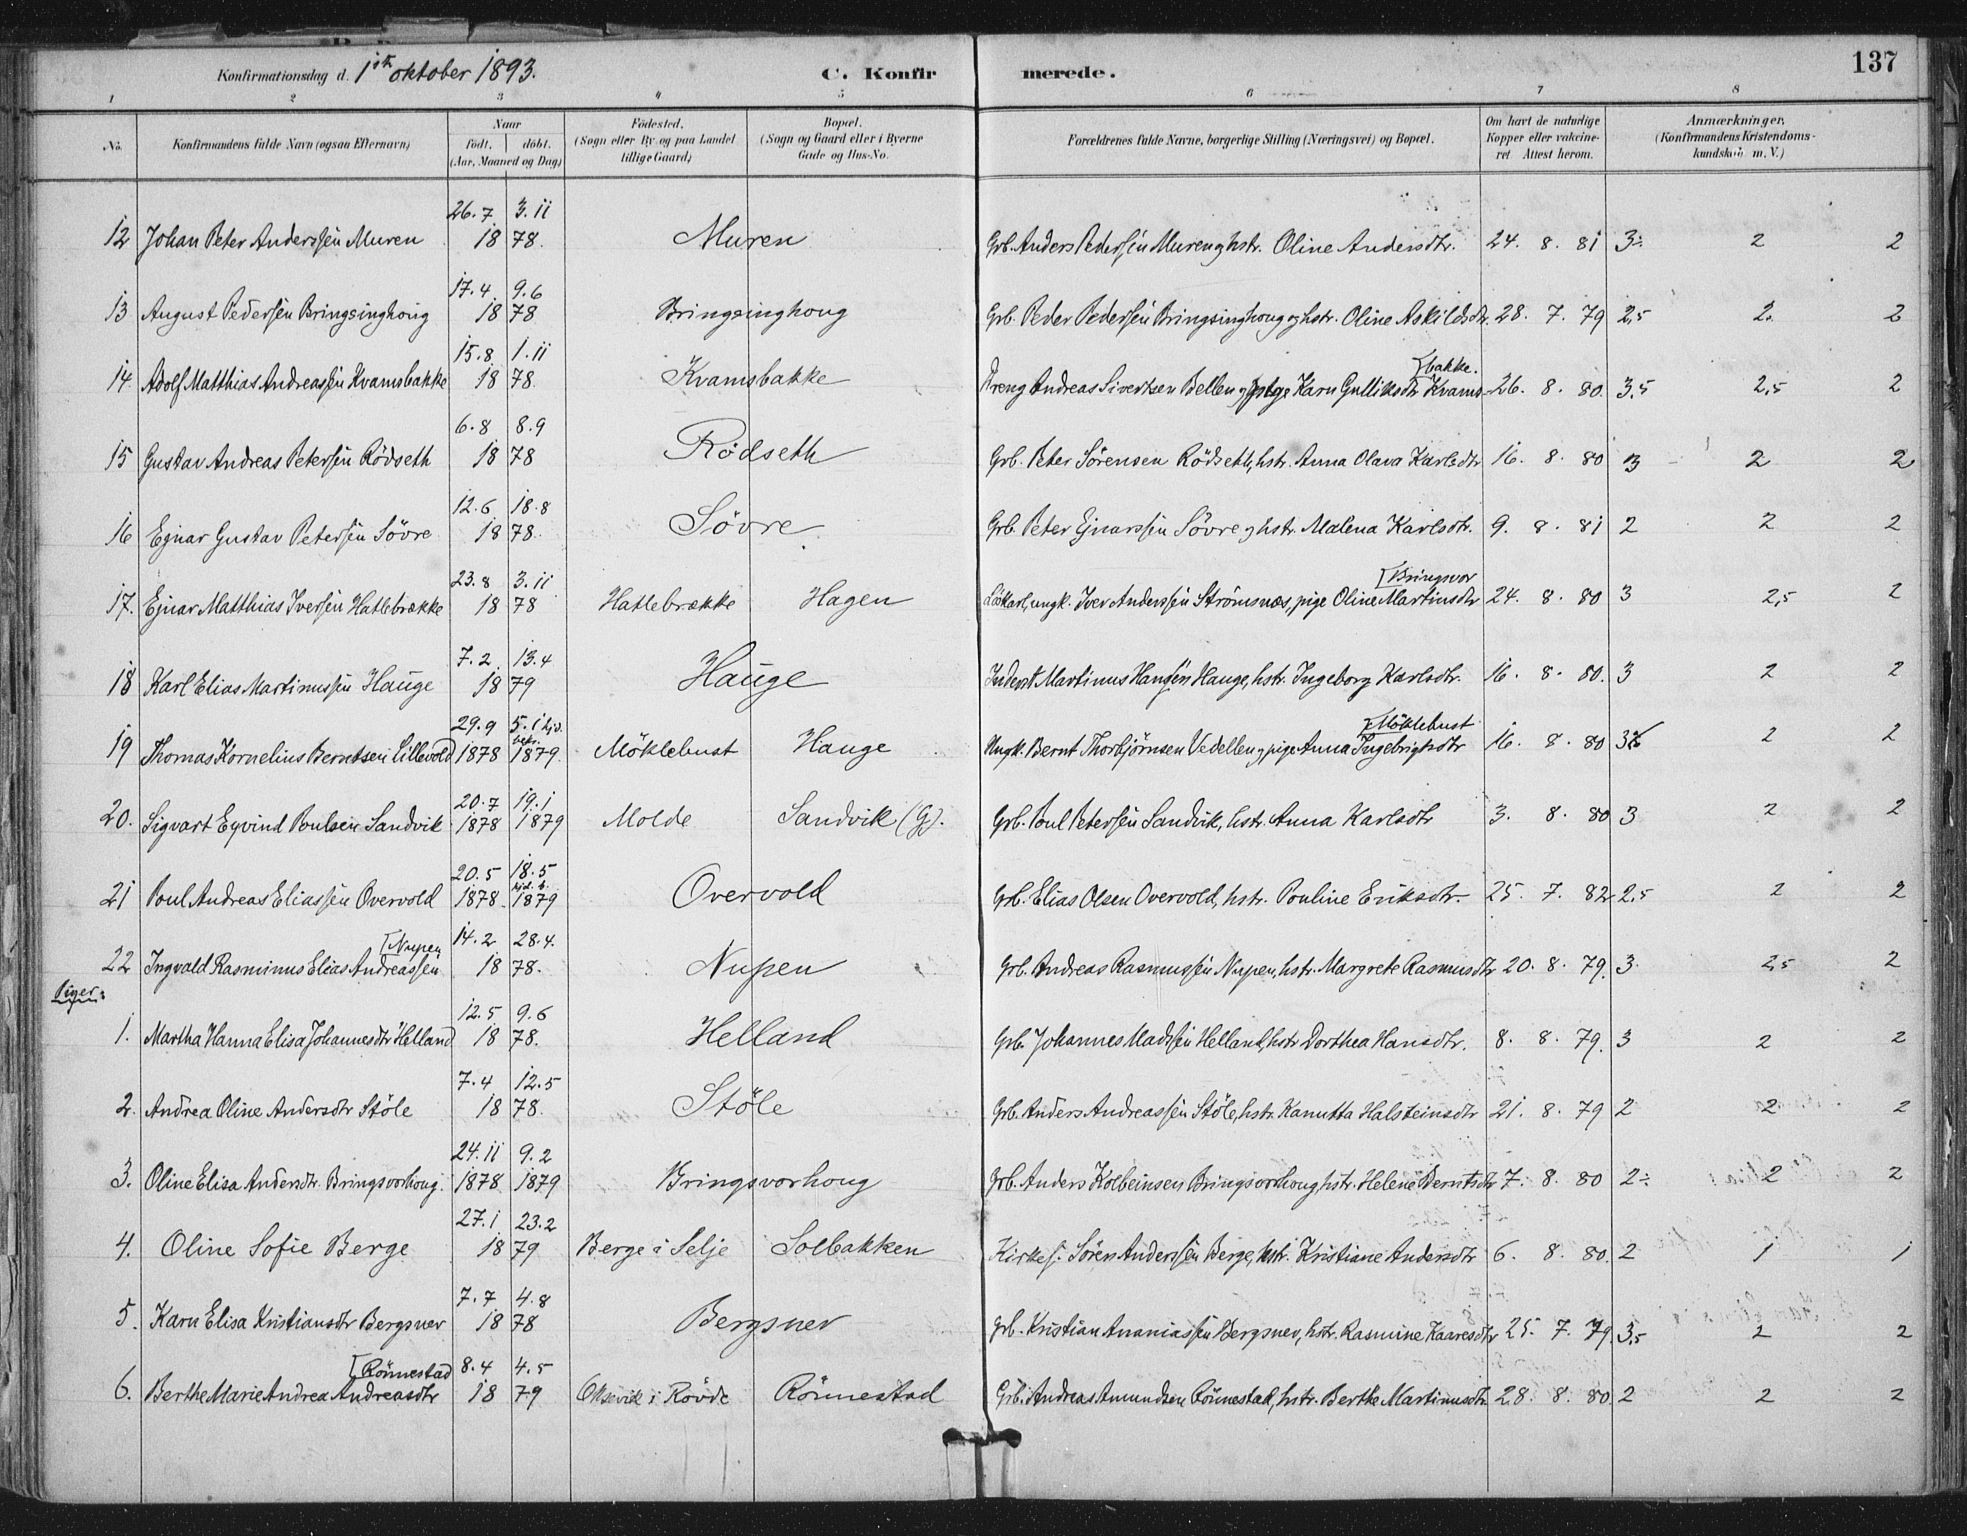 137
Konfirmationsdag d. 1ste oktober 1893. C. Konfirmerede.
1 2 3 4 5 6 7 8
No. Konfirmandens fulde Navn (ogsaa Efternavn) Naar født, døbt. (Aar, Maaned og Dag) Fødested. (Sogn eller By og paa Landet tillige Gaard) Bopæl. (Sogn og Gaard eller i Byerne Gade og Hus-No. Forældrenes fulde Navne, borgerlige Stilling (Næringsvei) og Bopæl. Om havt de naturlige Kopper eller vakcineret. Attest herom. Anmærkninger. (Konfirmandens Kristendomskundskab m. V.)
26.7 3.11
12 Johan Peter Anderssen Muren 18 78. Muren Grb. Anders Pedersen Muren og hstr. Oline Andersdtr. 24. 8. 81 3÷ 2 2
17.4 9.6
13 August Pedersen Bringsinghoug 18 78 Bringsinghoug Grb. Peder Pedersen Bringsinghoug og hstr. Oline Askildsdtr. 28. 7. 79 2,5 2. 2
15.8 1.11 [bakke.
14 Adolf Matthias Andreassen Kvamsbakke 18 78. Kvamsbakke Dreng Andreas Sivertsen Bellen og pige Karn Gulliksdtr Kvams- 26. 8. 80. 3,5 2,5 2
6.8 8.9
15 Gustav Andreas Petersen Rödseth 18 78 Rödseth Grb. Peter Sörensen Rödseth, hstr. Anna Olava Karlsdtr 16. 8. 80 3 2 2
12.6 18.8
16 Ejnar Gustav Petersen Sövre 18 78. Sövre Grb. Peter Ejnarssen Sövre og hstr. Malena Karlsdtr. 9. 8. 81 2 2 2
23.8 3.11 [Bringsvor
17. Ejnar Matthias Iversen Hatlebrække 18 78 Hatlebrække Hagen Löskarl, ungk. Iver Anderssen Strömsnæs, pige Oline Martinsdtr 24. 8. 80 3 2,5 2
7.2 13.4
18 Karl Elias Martinussen Hauge 18 79 Hauge Inderst Martinus Hansen Hauge, hstr. Ingeborg Karlsdtr. 16. 8. 80. 3 2 2
29.9 5.1 hjd. bekr. [Möklebust
19 Thomas Kornelius Berntsen Lillevold 1878 1879. Möklebust Hauge Ungk. Bernt Thorbjörnsen Vedellen og pige Anna Ingebrigtsdtr 16. 8. 80 3 2 2
20.7 19.1
20. Sigvart Eyvind Poulsen Sandvik 1878 1879 Molde Sandvik (G). Grb. Poul Petersen Sandvik, hstr. Anna Karlsdtr 3. 8. 80 3 2 2
20.5 18.5 hjd. b.
21 Poul Andreas Eliassen Overvold 1878 1879 Overvold Grb. Elias Olsen Overvold, hstr. Pouline Eriksdtr. 25. 7. 82 2,5 2 2
[Nupen 14.2 28.4.
22 Ingvald Rasminus Elias Andreassen 18 78. Nupen Grb. Andreas Rasmussen Nupen, hstr. Margrete Rasmusdtr 20. 8. 79. 3. 2,5 2
Piger:
12.5 9.6
1. Martha Hanna Elisa Johannesdtr Helland 18 78. Helland Grb. Johannes Madssen Helland, hstr Dorthea Hansdtr. 8. 8. 79. 3 2 2
7.4 12.5
2. Andrea Oline Andersdtr Stöle 18 78. Stöle Grb. Anders Andreassen Stöle, hstr. Kanutta Halsteinsdtr 21. 8. 79 2 2 2
24.11 9.2
3. Oline Elisa Andersdtr. Bringsvorhoug. 1878 1879 Bringsvorhoug Grb. Anders Kolbeinsen Bringsvorhoug, hstr. Helene Berntsdtr 7. 8. 80 2÷ 2 2
27.1 23.2
4. Oline Sofie Berge 18 79 Berge i Selje Solbakken Kirkes. Sören Anderssen Berge, hstr. Kristiane Andersdtr 6. 8. 80. 2 1 1
7.7 4.8
5. Karn Elisa Kristiansdtr Bergsnev 18 78 Bergsnev Grb. Kristian Ananiassen Bergsnev, hstr. Rasmine Karresdtr 25. 7. 79 3,5 2 2
[Rönnestad 8.4 4.5
6. Berthe Marie Andrea Andreasdtr 18 79 Oksevik i Rövde Rönnestad Grb. Andreas Amundsen Rönnestad, hstr. Berthe Martinusdtr 28. 8. 80. 2 2 2